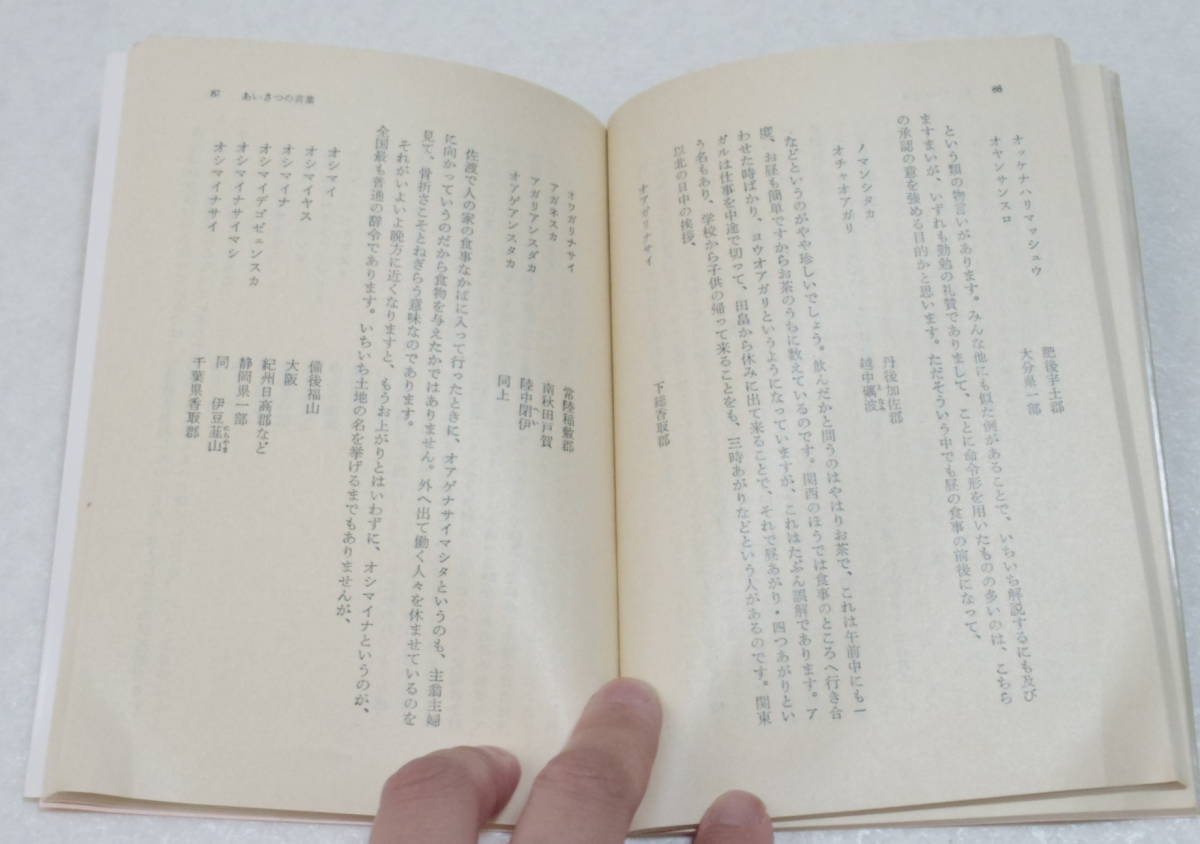 オッケナハリマッシュウ　肥後宇土郡
オヤンサンスロ　大分県一部
という類の物言いがあります。みんな他にも似た例があることで、いちいち解説するにも及び
ますまいが、いずれも勤勉の礼賛でありまして、ことに命令形を用いたものの多いのは、こちら
の承認の意を強める目的かと思います。ただそういう中でも昼の食事の前後になって、
ノマンシタカ　丹後加佐郡
オチャオアガリ　越中礪波
などというのがやや珍しいでしょう。飲んだかと問うのはやはりお茶で、これは午前中にも一
度、お昼も簡単ですからお茶のうちに数えているのです。関西のほうでは食事のところへ行き合
わせた時ばかり、ヨウオアガリというようになっていますが、これはたぶん誤解であります。ア
ガルは仕事を中途で切って、田畠から休みに出て来ることで、それで昼あがり・四つあがりとい
う名もあり、学校から子供の帰って来ることをも、三時あがりなどという人があるのです。関東
以北の日中の挨拶、
オアガリナサイ　下総香取郡
87　あいさつの言葉
オワガリナサイ　常陸稲敷郡
アガネスカ　南秋田戸賀
アガリアンスダカ　陸中閉伊
オアゲアンスタカ　同上
佐渡で人の家の食事なかばに入って行ったときに、オアゲナサイマシタというのも、主翁主婦
に向かっていうのだから食物を与えたかではありません。外へ出て働く人々を休ませているのを
見て、骨折さこそとねぎらう意味なのであります。
それがいよいよ晩方に近くなりますと、もうお上がりとはいわずに、オシマイナというのが、
全国最も普通の辞令であります。いちいち土地の名を挙げるまでもありませんが、
オシマイ　備後福山
オシマイヤス　大阪
オシマイナ　紀州日高郡など
オシマイデゴゼェンスカ　静岡県一部
オシマイナサイマシ　同　伊豆韮山
オシマイナサイ　千葉県香取郡